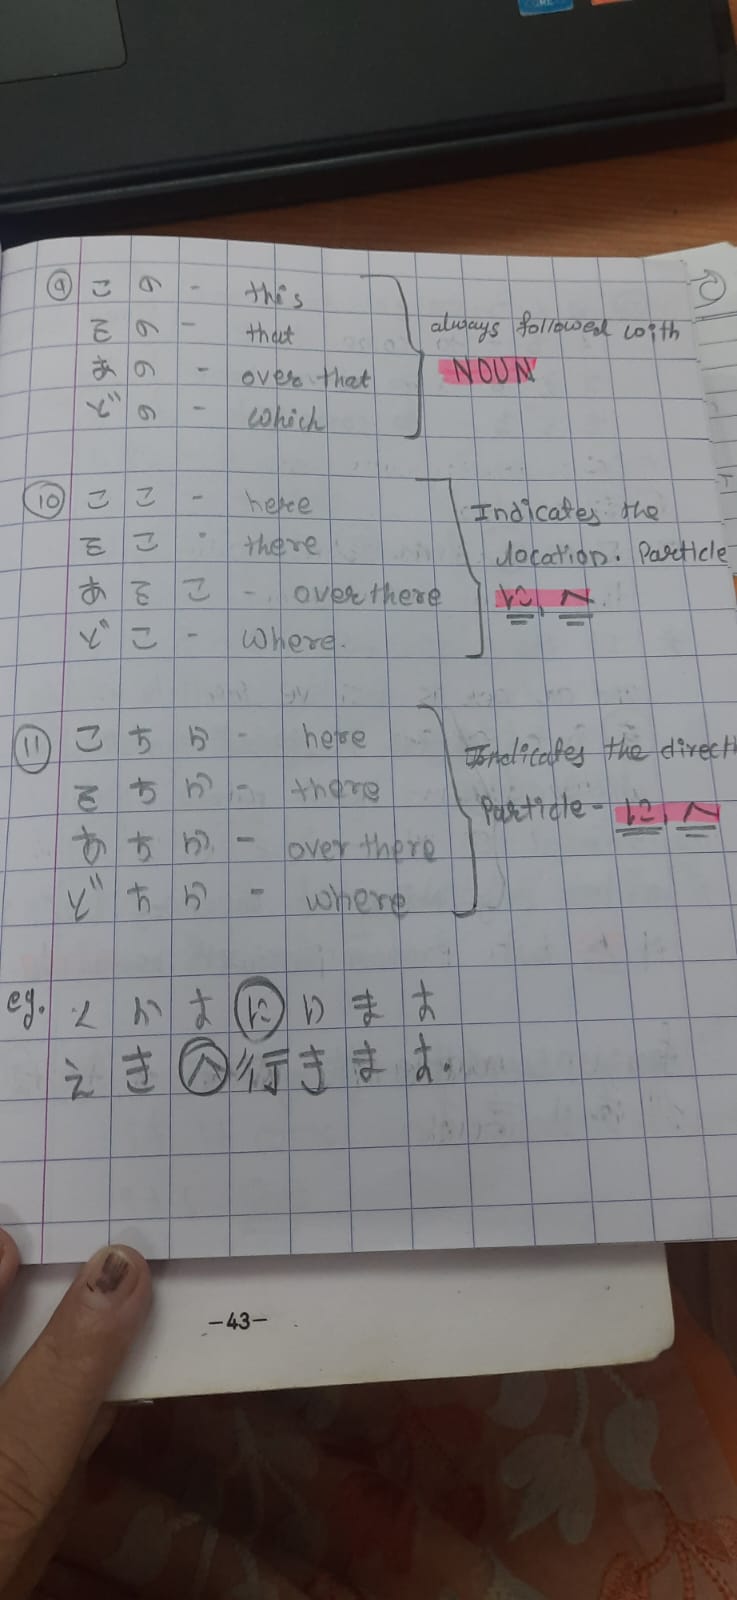 ⑨ この - this
その - that
あの - over that
どの - which
always followed with
NOUN
⑩ ここ - here
そこ - there
あそこ - over there
どこ - where.
Indicates the
location. Particle
に, へ
⑪ こちら - here
そちら - there
あちら - over there
どちら - where
Indicates the direct
Particle - に, へ
eg. にいます
えきへ行きます.
-43-